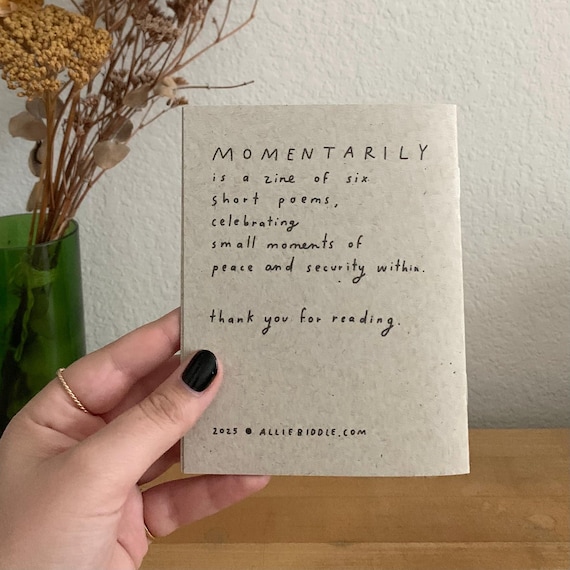 MOMENTARILY
is a zine of six
short poems,
celebrating
small moments of
peace and security within.
thank you for reading.
2025 © ALLIEBIDDLE.COM